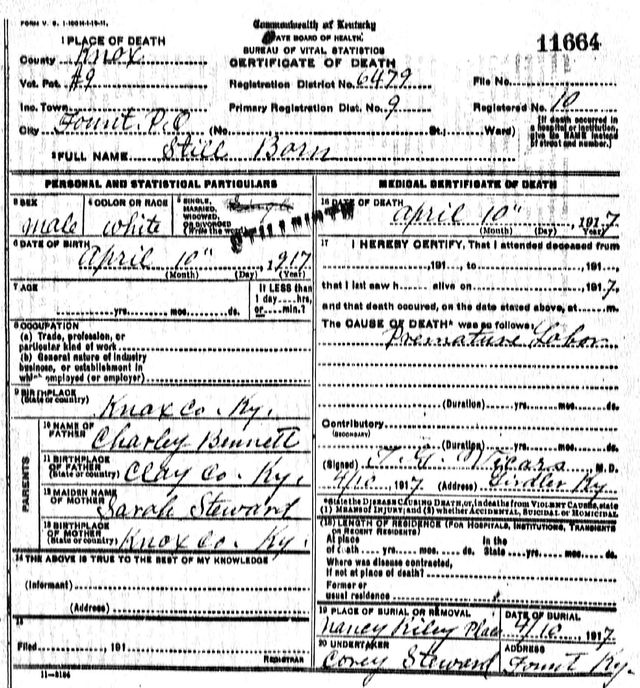 FORM V. S. 1-100M-1-19-11.
Commonwealth of Kentucky
STATE BOARD OF HEALTH.
BUREAU OF VITAL STATISTICS
CERTIFICATE OF DEATH
11664
1 PLACE OF DEATH
County Knox
Vot. Pct. #9
Inc. Town
City Fount P.O (No. St.; Ward)
Registration District No. 6479
Primary Registration Dist. No. 9
File No.
Registered No. 10
[If death occurred in
a hospital or institution,
give its NAME instead
of street and number.]
2 FULL NAME Still Born
PERSONAL AND STATISTICAL PARTICULARS
3 SEX male
4 COLOR OR RACE white
5 SINGLE, MARRIED, WIDOWED OR DIVORCED (Write the word) Single
STILLBIRTH
6 DATE OF BIRTH
April 10", 1917
(Month) (Day) (Year)
7 AGE
yrs. mos. ds.
If LESS than
1 day... hrs.
or... min.?
8 OCCUPATION
(a) Trade, profession, or
particular kind of work
(b) General nature of industry
business, or establishment in
which employed (or employer)
9 BIRTHPLACE
(State or country) Knox Co. Ky.
PARENTS
10 NAME OF
FATHER Charley Bennett
11 BIRTHPLACE
OF FATHER
(State or country) Clay Co. Ky.
12 MAIDEN NAME
OF MOTHER Sarah Steward
13 BIRTHPLACE
OF MOTHER
(State or country) Knox Co. Ky.
14 THE ABOVE IS TRUE TO THE BEST OF MY KNOWLEDGE
(Informant)
(Address)
15
Filed, 191
REGISTRAR
11-3184
MEDICAL CERTIFICATE OF DEATH
16 DATE OF DEATH
April 10", 1917
(Month) (Day) (Year)
17 I HEREBY CERTIFY, That I attended deceased from
, 191..., to , 191...,
that I last saw h alive on , 1917,
and that death occurred, on the date stated above, at m.
The CAUSE OF DEATH* was as follows:
Premature Labor
(Duration) yrs. mos. ds.
Contributory
(SECONDARY)
(Duration) yrs. mos. ds.
(Signed) M.D.
4/10 1917 (Address) Girdler Ky
*State the DISEASE CAUSING DEATH, or, in deaths from VIOLENT CAUSES, state
(1) MEANS OF INJURY; and (2) whether ACCIDENTAL, SUICIDAL or HOMICIDAL.
(18) LENGTH OF RESIDENCE (FOR HOSPITALS, INSTITUTIONS, TRANSIENTS
OR RECENT RESIDENTS)
At place
of death yrs. mos. ds.
In the
State yrs. mos. ds.
Where was disease contracted,
if not at place of death?
Former or
usual residence
19 PLACE OF BURIAL OR REMOVAL
Nancy Riley Place
DATE OF BURIAL
4/10 1917
20 UNDERTAKER
Corey Steward
Fount Ky.